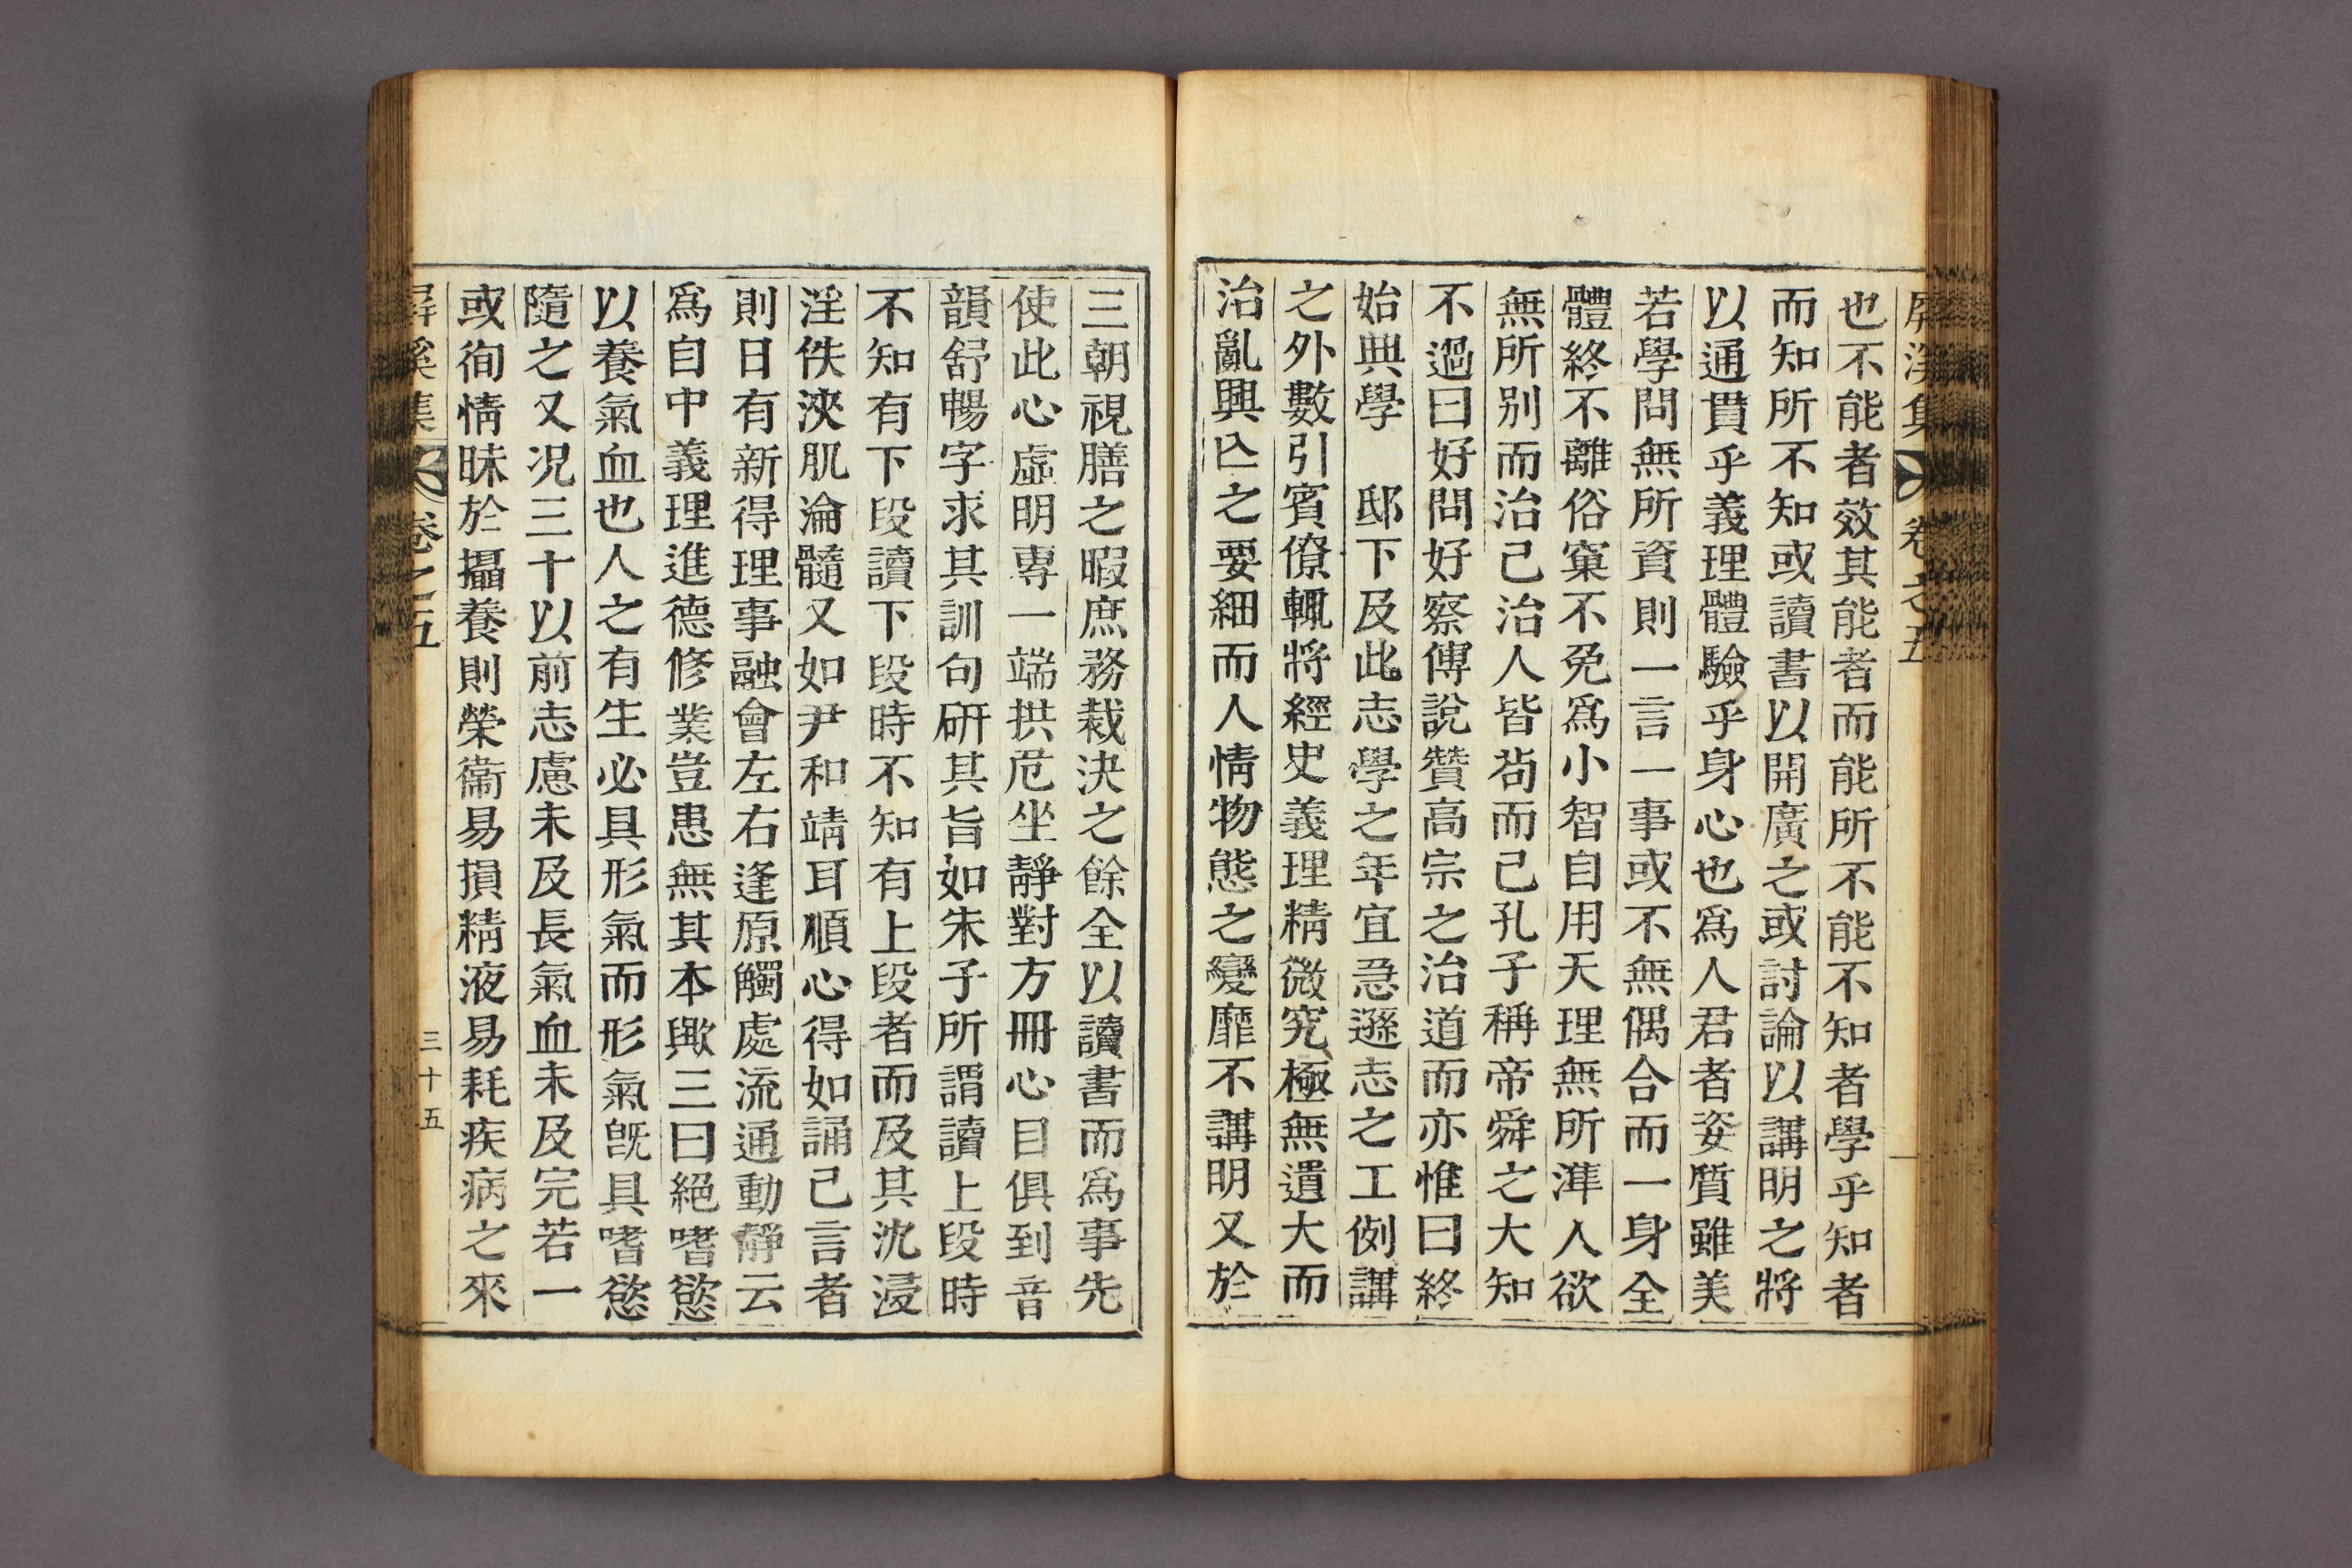 屏溪集 卷之五
也不能者效其能者而能所不能不知者學乎知者
而知所不知或讀書以開廣之或討論以講明之將
以通貫乎義理體驗乎身心也爲人君者姿質雖美
若學問無所資則一言一事或不無偶合而一身全
體終不離俗窠不免爲小智自用天理無所準人欲
無所別而治己治人皆苟而已孔子稱帝舜之大知
不過曰好問好察傅說贊高宗之治道而亦惟曰終
始典學 邸下及此志學之年宜急遜志之工例講
之外數引賓僚輒將經史義理精微究極無遺大而
治亂興亾之要細而人情物態之變靡不講明又於
三朝視膳之暇庶務裁決之餘全以讀書而爲事先
使此心虛明專一端拱危坐靜對方冊心目俱到音
韻舒暢字求其訓句研其旨如朱子所謂讀上段時
不知有下段讀下段時不知有上段者而及其沈浸
淫佚浹肌淪髓又如尹和靖耳順心得如誦己言者
則日有新得理事融會左右逢原觸處流通動靜云
爲自中義理進德修業豈患無其本歟三曰絕嗜慾
以養氣血也人之有生必具形氣而形氣旣具嗜慾
隨之又况三十以前志慮未及長氣血未及完若一
或徇情昧於攝養則榮衞易損精液易耗疾病之來
屏溪集 卷之五 三十五